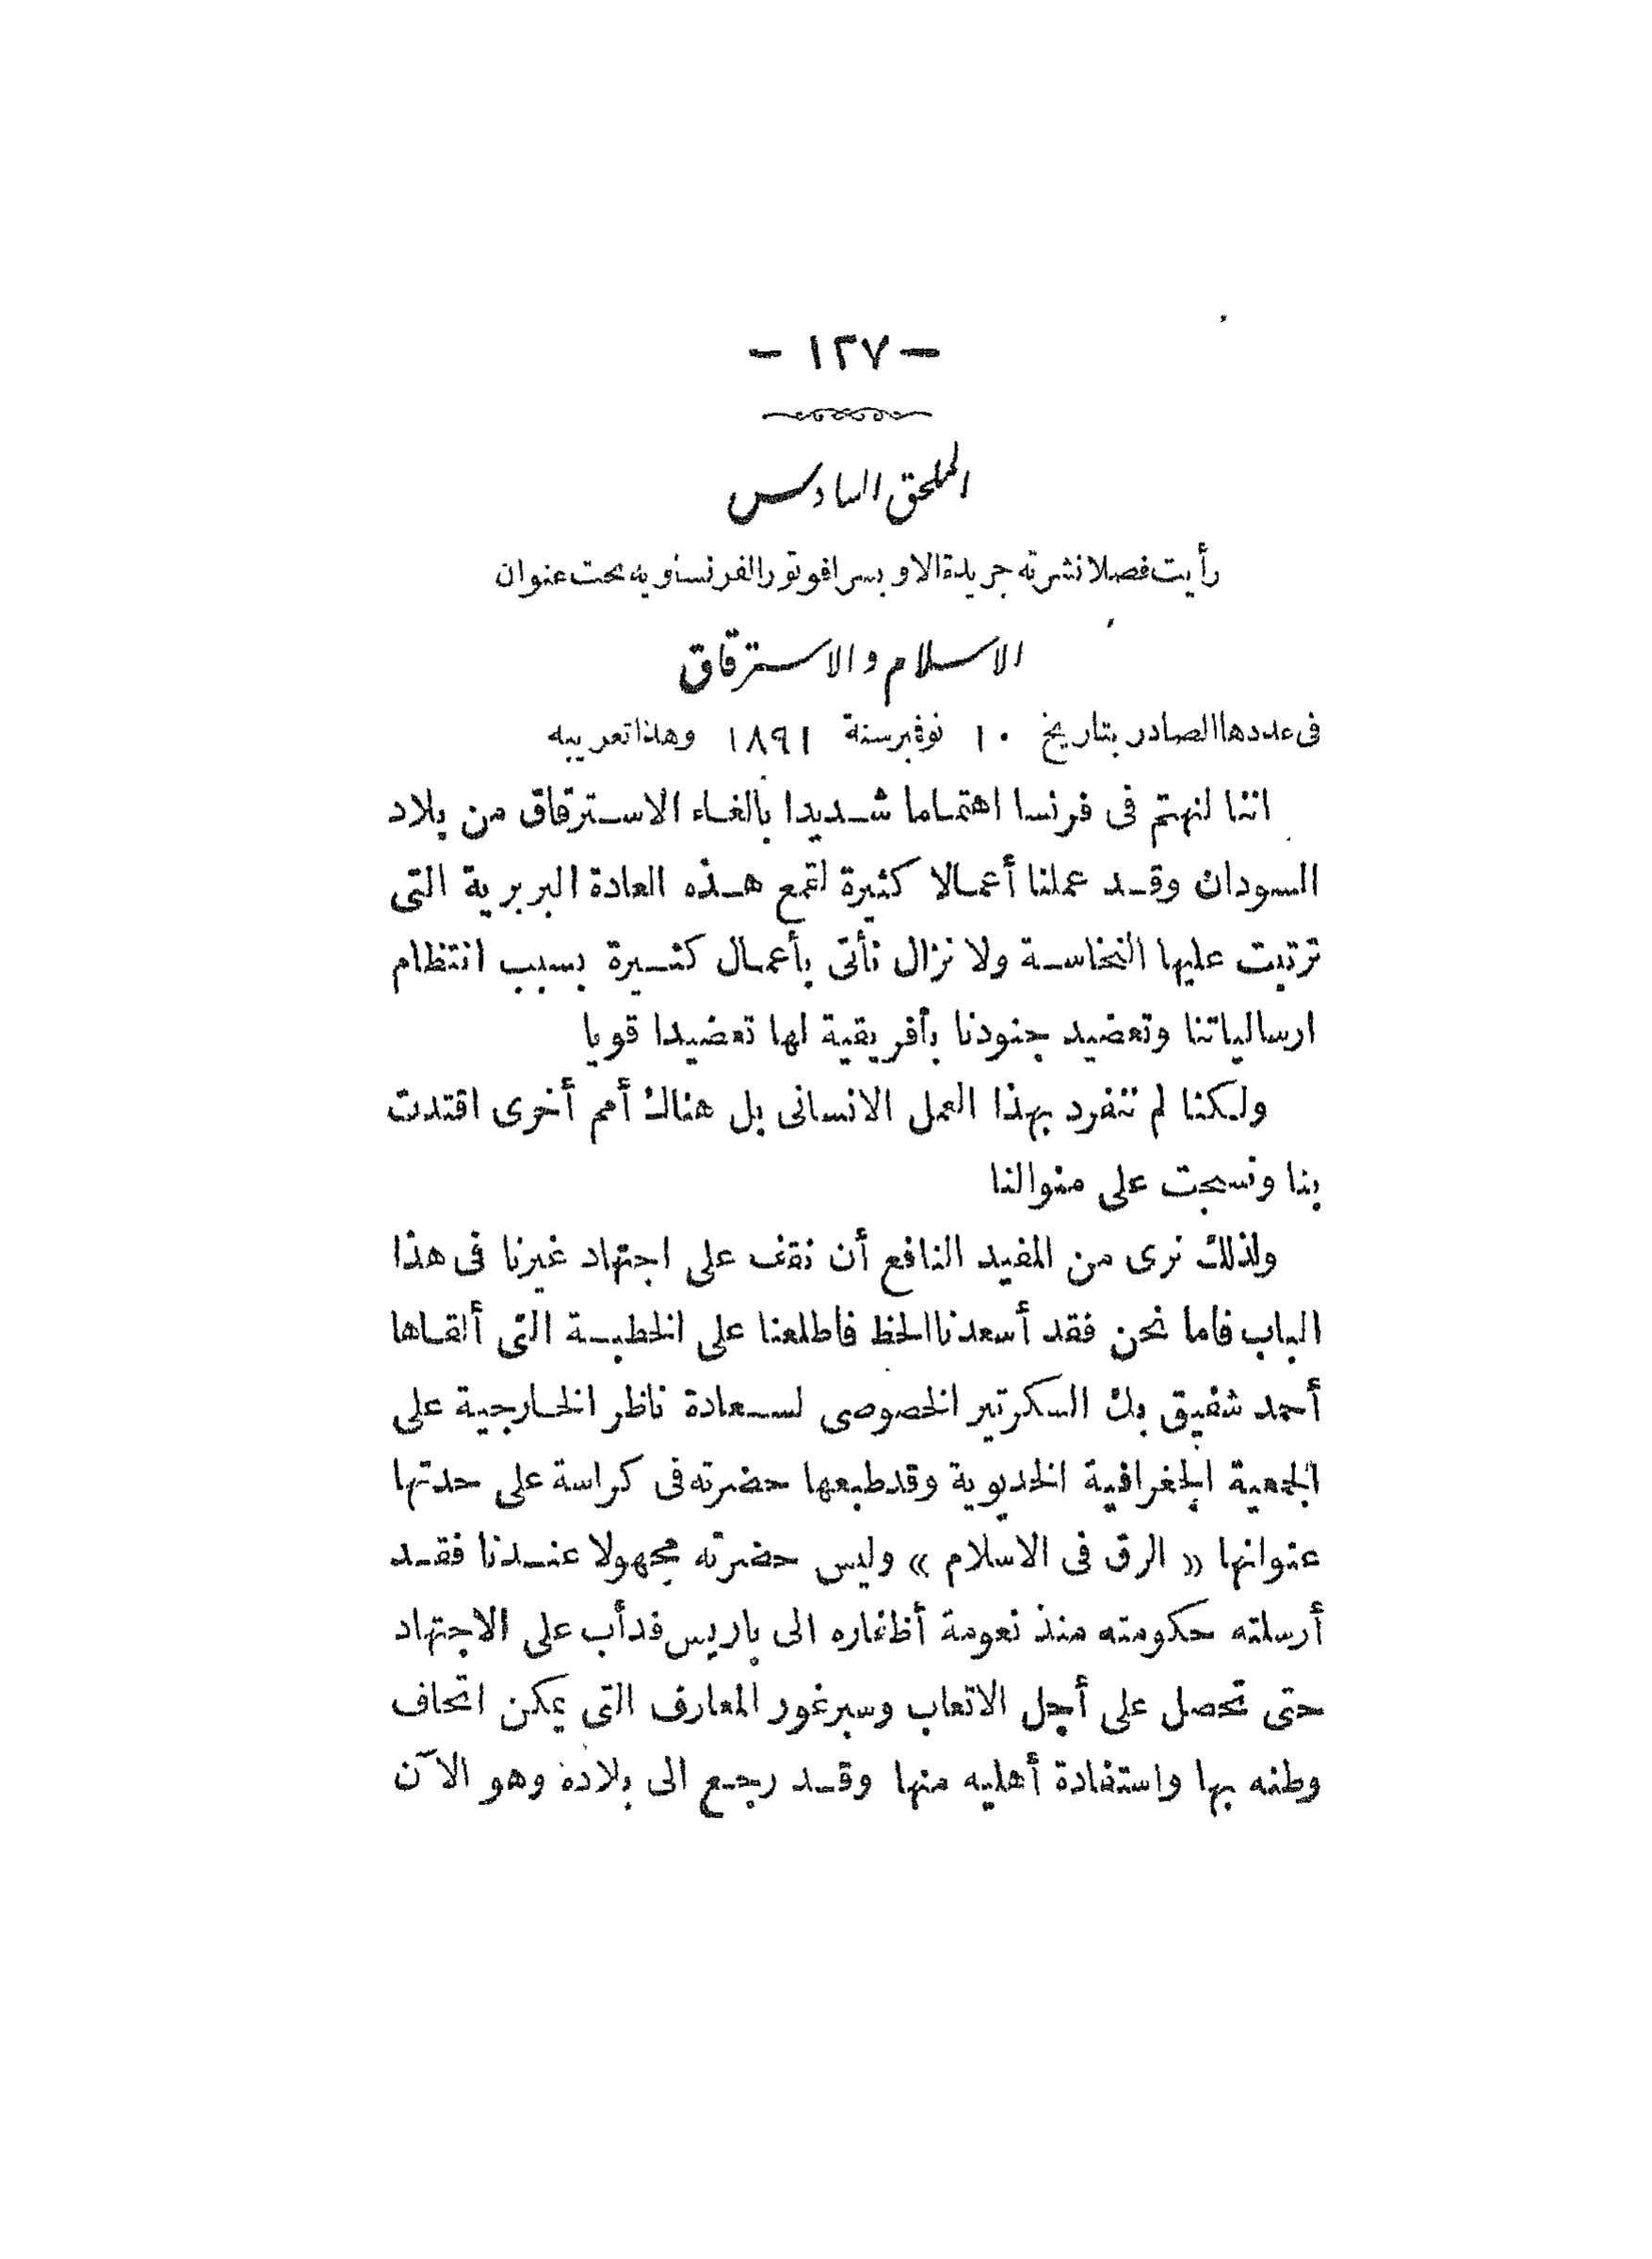 - ١٢٧ -
الملحق السادس
رأيت فصلا نشرته جريدة الاوبسرافوتور الفرنساوية تحت عنوان
الاسلام والاسترقاق
فى عددها الصادر بتاريخ ١٠ نوفمبر سنة ١٨٩١ وهذا تعريبه
اننا لنهتم فى فرنسا اهتماما شديدا بالغاء الاسترقاق من بلاد
السودان وقد عملنا أعمالا كثيرة لقمع هذه العادة البربرية التى
ترتبت عليها النخاسة ولا نزال نأتى بأعمال كثيرة بسبب انتظام
ارسالياتنا وتعضيد جنودنا بأفريقية لها تعضيدا قويا
ولكنا لم ننفرد بهذا العمل الانسانى بل هناك أمم أخرى اقتدت
بنا ونسجت على منوالنا
ولذلك نرى من المفيد النافع أن نقف على اجتهاد غيرنا فى هذا
الباب فاما نحن فقد أسعدنا الحظ فاطلعنا على الخطبة التى ألقاها
أحمد شفيق بك السكرتير الخصوصى لسعادة ناظر الخارجية على
الجمعية الجغرافية الخديوية وقد طبعها حضرته فى كراسة على حدتها
عنوانها « الرق فى الاسلام » وليس حضرته مجهولا عندنا فقد
أرسلته حكومته منذ نعومة أظفاره الى باريس فدأب على الاجتهاد
حتى تحصل على أجل الاتعاب وسبر غور المعارف التى يمكن اتحاف
وطنه بها واستفادة أهليه منها وقد رجع الى بلاده وهو الآن